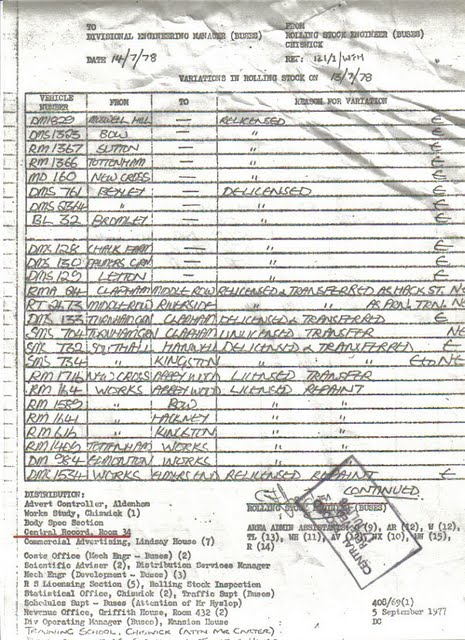 TO FROM
DIVISIONAL ENGINEERING MANAGER (BUSES) ROLLING STOCK ENGINEER (BUSES)
CHISWICK
DATE 14/7/78 REF: 121/1/WFH
VARIATIONS IN ROLLING STOCK ON 13/7/78
VEHICLE NUMBER FROM TO REASON FOR VARIATION
DM1829 MUSWELL HILL — RELICENSED E
DMS1383 BOW — " E
RM1367 SUTTON — " E
RM1366 TOTTENHAM — " E
MD 160 NEW CROSS — " E
DMS 761 BEXLEY — DELICENSED E
DMS 2364 " — " E
BL 32 BROMLEY — " E
DMS 128 CHALK FARM — " E
DMS 130 PALMERS GRN — " E
DMS 129 LEYTON — " E
RMA 94 CLAPHAM MIDDLE ROW RELICENSED & TRANSFERRED AS HACK ST. NS
RT 2473 MIDDLEROW RIVERSIDE " " AS PON. TRN. NE
DMS 133 TURNHAM GRN CLAPHAM DELICENSED & TRANSFERRED E
SMS TURNHAM GRN CLAPHAM UNLICENSED TRANSFER NE
SMS 732 SOUTHALL HANWELL DELICENSED & TRANSFERRED E
SMS 734 " KINGSTON " " E to NE
RM 1716 NEW CROSS ABBEY WOOD LICENSED TRANSFER
RM 164 WORKS ABBEY WOOD LICENSED REPAINT
RM 1589 " BOW " "
RM 1641 " HACKNEY " "
RM 616 " KINGSTON " "
RM 1409 TOTTENHAM WORKS " "
DM 984 EDMONTON WORKS " "
DMS 1534 WORKS RELICENSED REPAINT E
CONTINUED.
DISTRIBUTION:
Advert Controller, Aldenham
Works Study, Chiswick (1)
Body Spec Section
Central Record, Room 34
Commercial Advertising, Lindsay House (7)
Costs Office (Mech Engr - Buses) (2)
Scientific Adviser (2), Distribution Services Manager
Mech Engr (Development - Buses) (3)
R S Licensing Section (5), Rolling Stock Inspection
Statistical Office, Chiswick (2), Traffic Supt (Buses)
Schedules Supt - Buses (Attention of Mr Hyslop)
Revenue Office, Griffith House, Room 432 (2)
Div Operating Manager (Buses), Mansion House
TRAINING SCHOOL, CHISWICK (ATTN MR CARTER)
ROLLING STOCK ENGINEER (BUSES)
AREA ADMIN ASSISTANTS (9), AR (12), W (12),
TL (13), WH (11), AV (12), HX (10), UX (15),
R (14)
400/69(1)
5 September 1977
DC